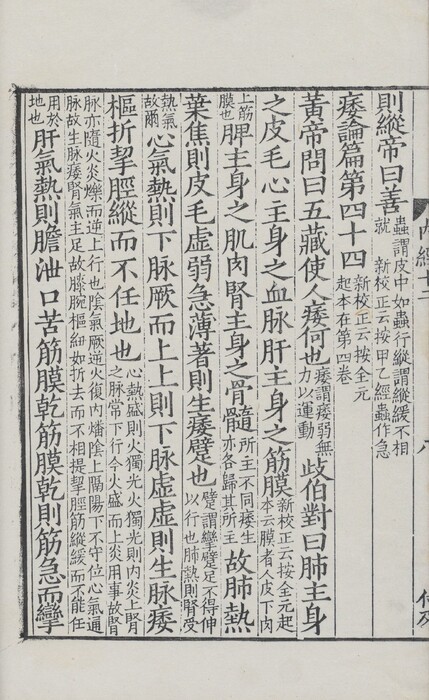 内經十二
八
則縱帝曰善蟲謂皮中如蟲行縱謂縱緩不相就 新校正云按甲乙經蟲作急
痿論篇第四十四新校正云按全元起本在第四卷
黃帝問曰五藏使人痿何也痿謂痿弱無力以運動岐伯對曰肺主身
之皮毛心主身之血脉肝主身之筋膜新校正云按全元起本云膜者人皮下肉
上筋膜也脾主身之肌肉腎主身之骨髓所主不同痿生亦各歸其所主故肺熱
葉焦則皮毛虛弱急薄著則生痿躄也躄謂攣躄足不得伸以行也肺熱則腎受
熱氣故爾心氣熱則下脉厥而上上則下脉虛虛則生脉痿
樞折挈脛縱而不任地也心熱盛則火獨光火獨光則内炎上腎之脉常下行今火盛而上炎用事故腎
脉亦隨火炎爍而逆上行也陰氣厥逆火復内燔陰上隔陽下不守位心氣通脉故生脉痿腎氣主足故膝腕樞紐如折去而不相提挈脛筋縱緩而不能任
用於地也肝氣熱則膽泄口苦筋膜乾筋膜乾則筋急而攣